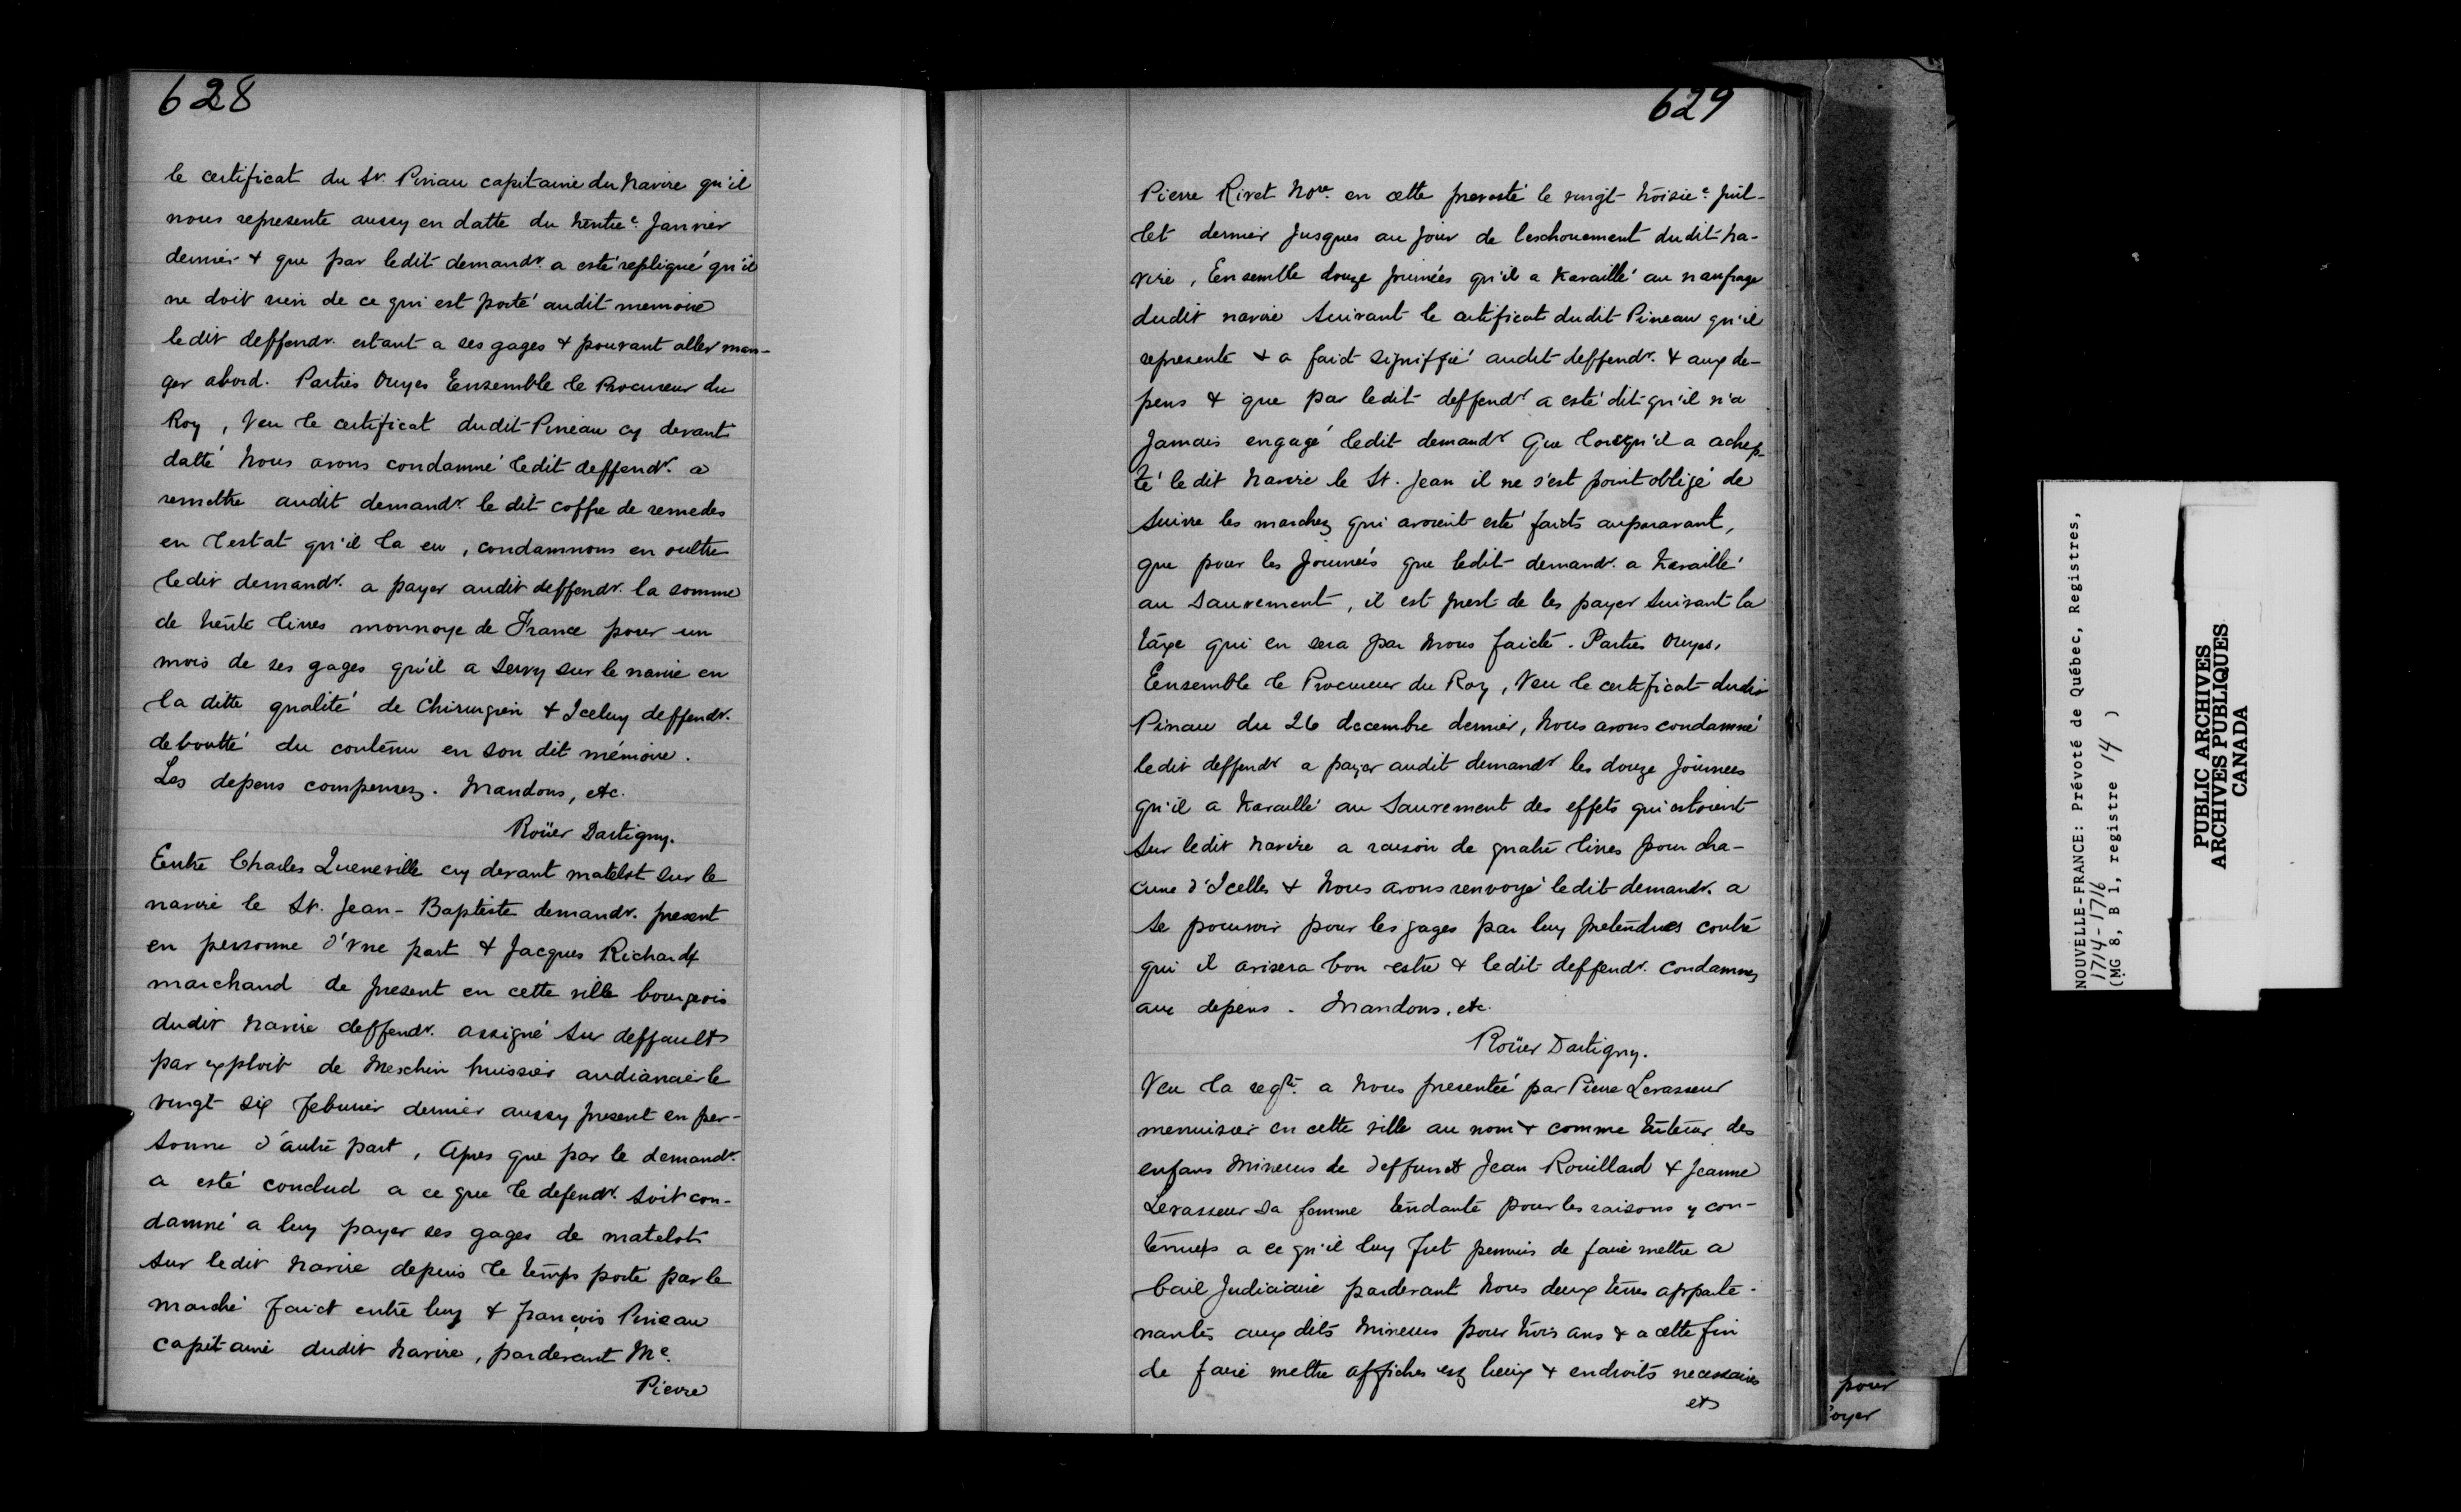 628
le certificat du Sr. Pinau capitaine du Navire qu'il
nous represente aussy en datte du trentie. Janvier
dernier & que par ledit demandr. a esté repliqué qu'il
ne doit rien de ce qui est porté audit memoire
ledit deffendr. estant a ses gages & pouvant aller man-
ger abord. Parties Ouyes Ensemble le Procureur du
Roy, Veu le certificat dudit Pineau cy devant
datté Nous avons condamné ledit deffendr. a
remettre audit demandr. le dit coffre de remedes
en l'estat qu'il l'a eu, condamnons en oultre
ledit demandr. a payer audit deffendr. la somme
de trente livres monnoye de France pour un
mois de ses gages qu'il a servy sur le navire en
la ditte qualité de Chirurgien & Iceluy deffendr.
deboutté du contenu en son dit mémoire.
Les depens compensez. Mandons, etc.
Roüer Dartigny.
Entre Charles Queneville cy devant matelot sur le
navire le St. Jean-Baptiste demandr. present
en personne d'Vne part & Jacques Richard
marchand de present en cette ville bourgeois
dudit Navire deffendr. assigné sur deffault
par exploit de Meschin huissier audiancier le
vingt six feburier dernier aussy present en per-
sonne d'autre part, Apres que par le demandr.
a esté conclud a ce que le defendr. soit con-
damné a luy payer ses gages de matelot
sur ledit Navire depuis le temps porté par le
marché faict entre luy & françois Pineau
capitaine dudit Navire, pardevant Me.
Pierre
629
Pierre Rivet Nore. en cette prevosté le vingt troisie. Juil-
let dernier Jusques au Jour de l'eschouement dudit Na-
vire, Ensemble douze journées qu'il a travaillé au naufrage
dudit navire suivant le certificat dudit Pineau qu'il
represente & a faict signiffié audit deffendr. & aux de-
pens & que par ledit deffendr a esté dit qu'il n'a
Jamais engagé ledit demandr Que lorsqu'il a achep-
té le dit Navire le St. Jean il ne s'est point obligé de
suivre les marchez qui avoient esté faicts auparavant,
que pour les Journées que ledit demandr. a travaillé
au sauvement, il est prest de les payer suivant la
taxe qui en sera par Nous faicte. Parties Ouyes,
Ensemble le Procureur du Roy, Veu le certificat dudit
Pinau du 26 decembre dernier, Nous avons condamné
ledit deffendr a payer audit demandr les douze Journees
qu'il a travaillé au sauvement des effets qui estoient
sur ledit Navire a raison de quatre livres pour cha-
cune d'Icelles & Nous avons renvoyé ledit demandr. a
se pourvoir pour les gages par luy pretendues contre
qui il avisera bon estre & ledit deffendr. condamnez
aux depens. Mandons, etc.
Roüer Dartigny.
Veu la reqte. a Nous presentée par Pierre Levasseur
menuisier en cette ville au nom & comme tuteur des
enfans Mineurs de deffunct Jean Rouillard & Jeanne
Levasseur sa femme tendante pour les raisons y con-
tenues a ce qu'il luy fut permis de faire mettre a
bail Judiciaire pardevant Nous deux terres apparte-
nantes aux dits Mineurs pour trois ans & a cette fin
de faire mettre affiches ez lieux & endroits necessaires
et
pour
oyer
NOUVELLE-FRANCE: Prévoté de Québec, Registres,
1714-1716
(MG 8, B 1, registre 14 )
PUBLIC ARCHIVES
ARCHIVES PUBLIQUES
CANADA